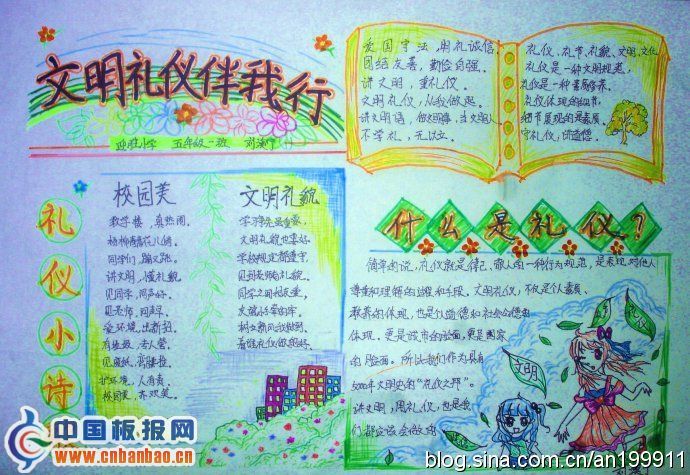 文明礼仪伴我行
迎胜小学 五年级一班
爱国守法，明礼诚信
团结友善，勤俭自强。
讲文明，重礼仪。
文明礼仪，从我做起。
讲文明语，做文明事，当文明人
不学礼，无以立。
礼仪、礼节、礼貌、文明、文化
礼仪是一种文明规范，
礼仪是一种素质修养。
礼仪体现的细节，
细节展现的是素质。
守礼仪，讲道德。
礼仪小诗
校园美
教学楼，真热闹。
杨柳青青花儿俏。
同学们，
讲文明，懂礼貌
见同学，问声好。
见老师，问声早。
爱环境，出新招。
有垃圾，
见废纸，弯腰捡。
护环境，人有责。
校园美，永欢笑。
文明礼貌
学习争先最重要，
文明礼貌也要好。
学校规定都遵守，
见到老师有礼貌。
同学之间
什么是礼仪？
简单的说，礼仪就是律己、敬人的一种行为规范，是表现对他人
尊重和理解的过程和手段。文明礼仪，不仅是个人素质、
教养的体现，也是个人道德和社会公德的
体现。更是城市的脸面，更是国家
的脸面。所以我们作为具有
5000年文明史的“礼仪之邦”，
讲文明，用礼仪，也是我
们都应该会做的
礼仪
文明
中国板报网
www.cnbanbao.cn
blog.sina.com.cn/an199911